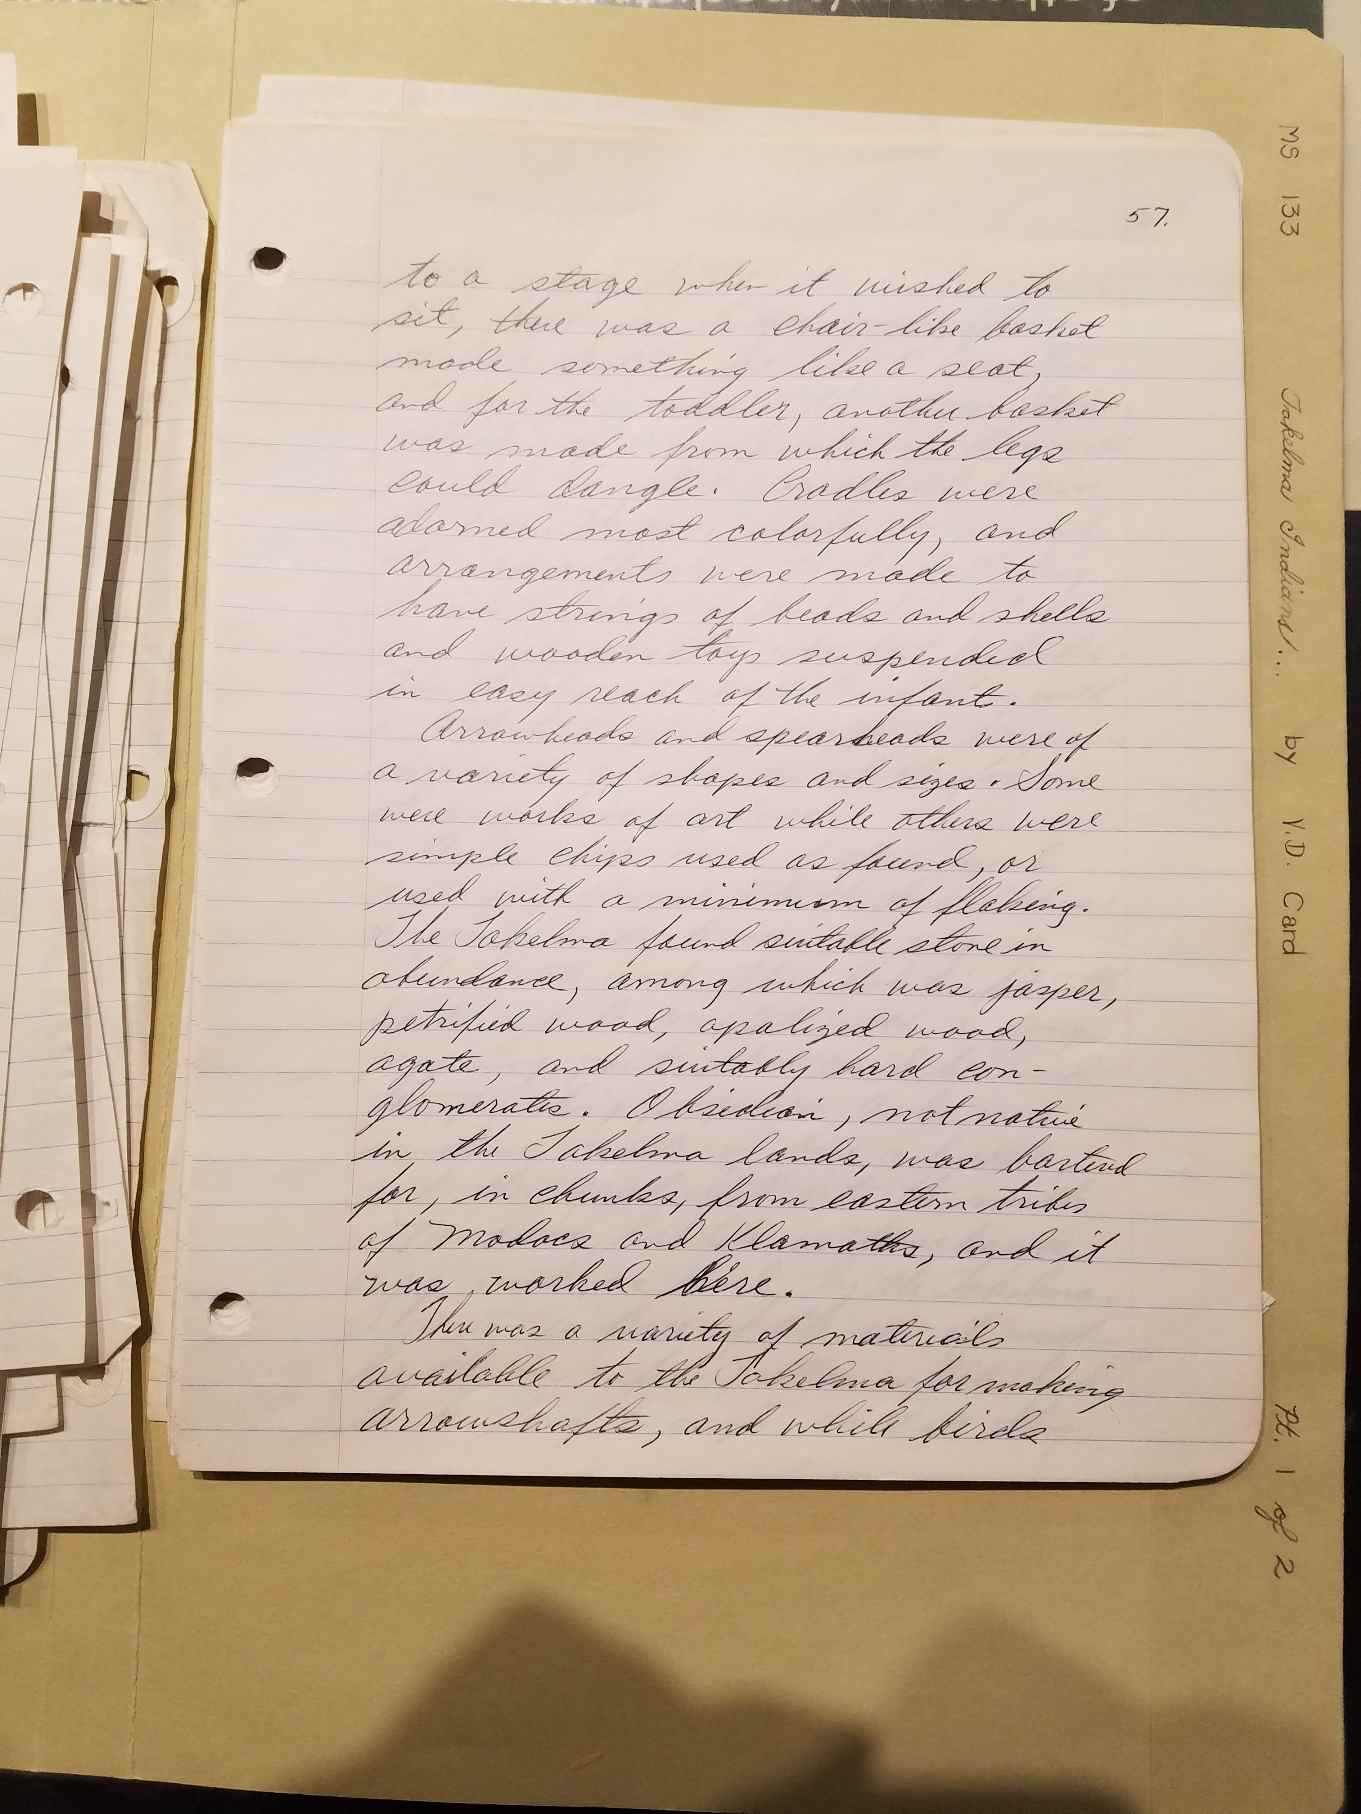 57.
to a stage when it wished to
sit, there was a chair-like basket
made something like a seat,
and for the toddler, another basket
was made from which the legs
could dangle. Cradles were
adorned most colorfully, and
arrangements were made to
have strings of beads and shells
and wooden toys suspended
in easy reach of the infant.
Arrowheads and spearheads were of
a variety of shapes and sizes. Some
were works of art while others were
simple chips used as found, or
used with a minimum of flaking.
The Takelma found suitable stone in
abundance, among which was jasper,
petrified wood, opalized wood,
agate, and suitably hard con-
glomerates. Obsidian, not native
in the Takelma lands, was bartered
for, in chunks, from eastern tribes
of Modocs and Klamaths, and it
was worked here.
There was a variety of materials
available to the Takelma for making
arrowshafts, and while birds
MS 133 Takelma Indians... by V.D. Card Pt. 1 of 2